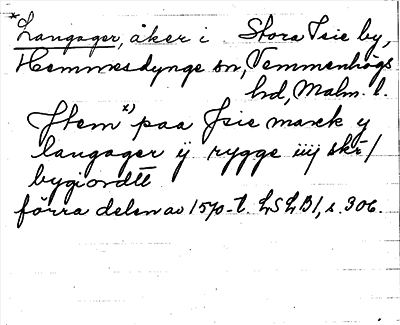 *Langager, åker i Stora Isie by,
Hemmesdynge sn, Vemmenhögs
hd, Malm. l.
Jtem*) paa Jsie marck y
langager ij rygge iiij skr/
bygiordtt
förra delen av 1570-t. LSLB1, s. 306.